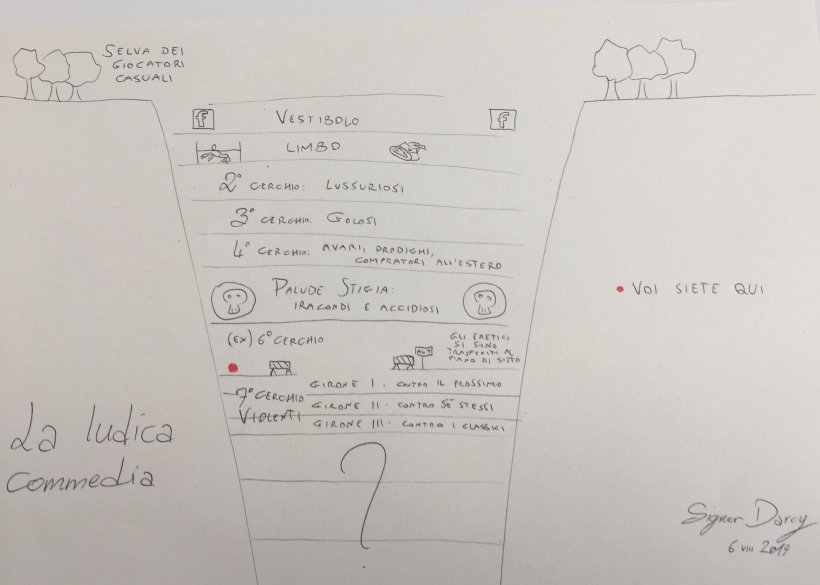 SELVA DEI
GIOCATORI
CASUALI
f VESTIBOLO f
LIMBO
2° CERCHIO: LUSSURIOSI
3° CERCHIO: GOLOSI
4° CERCHIO: AVARI, PRODIGHI,
COMPRATORI ALL'ESTERO
PALUDE STIGIA:
IRACONDI E ACCIDIOSI
• VOI SIETE QUI
(EX) 6° CERCHIO
GLI ERETICI
SI SONO
TRASFERITI AL
PIANO DI SOTTO
ALT
7° CERCHIO
VIOLENTI
GIRONE I. CONTRO IL PROSSIMO
GIRONE II. CONTRO SÉ STESSI
GIRONE III. CONTRO I CLASSICI
?
La ludica
commedia
Signor Darcy
6 VIII 2019